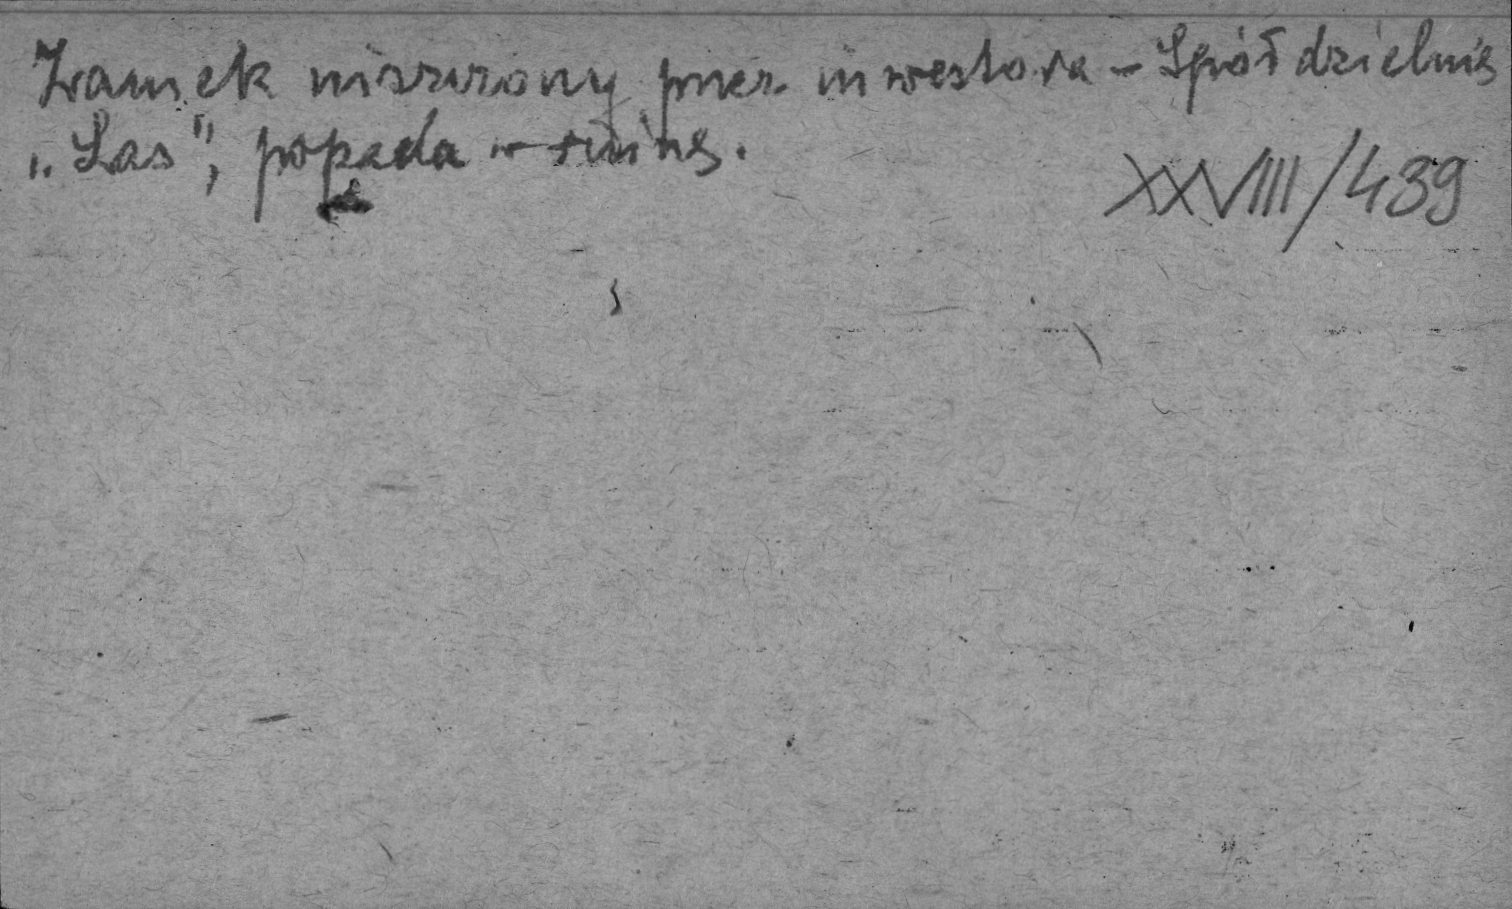 Zamek niszczony przez inwestora - Spółdzielnię
„Las", popada w ruinę.
XXVIII/439